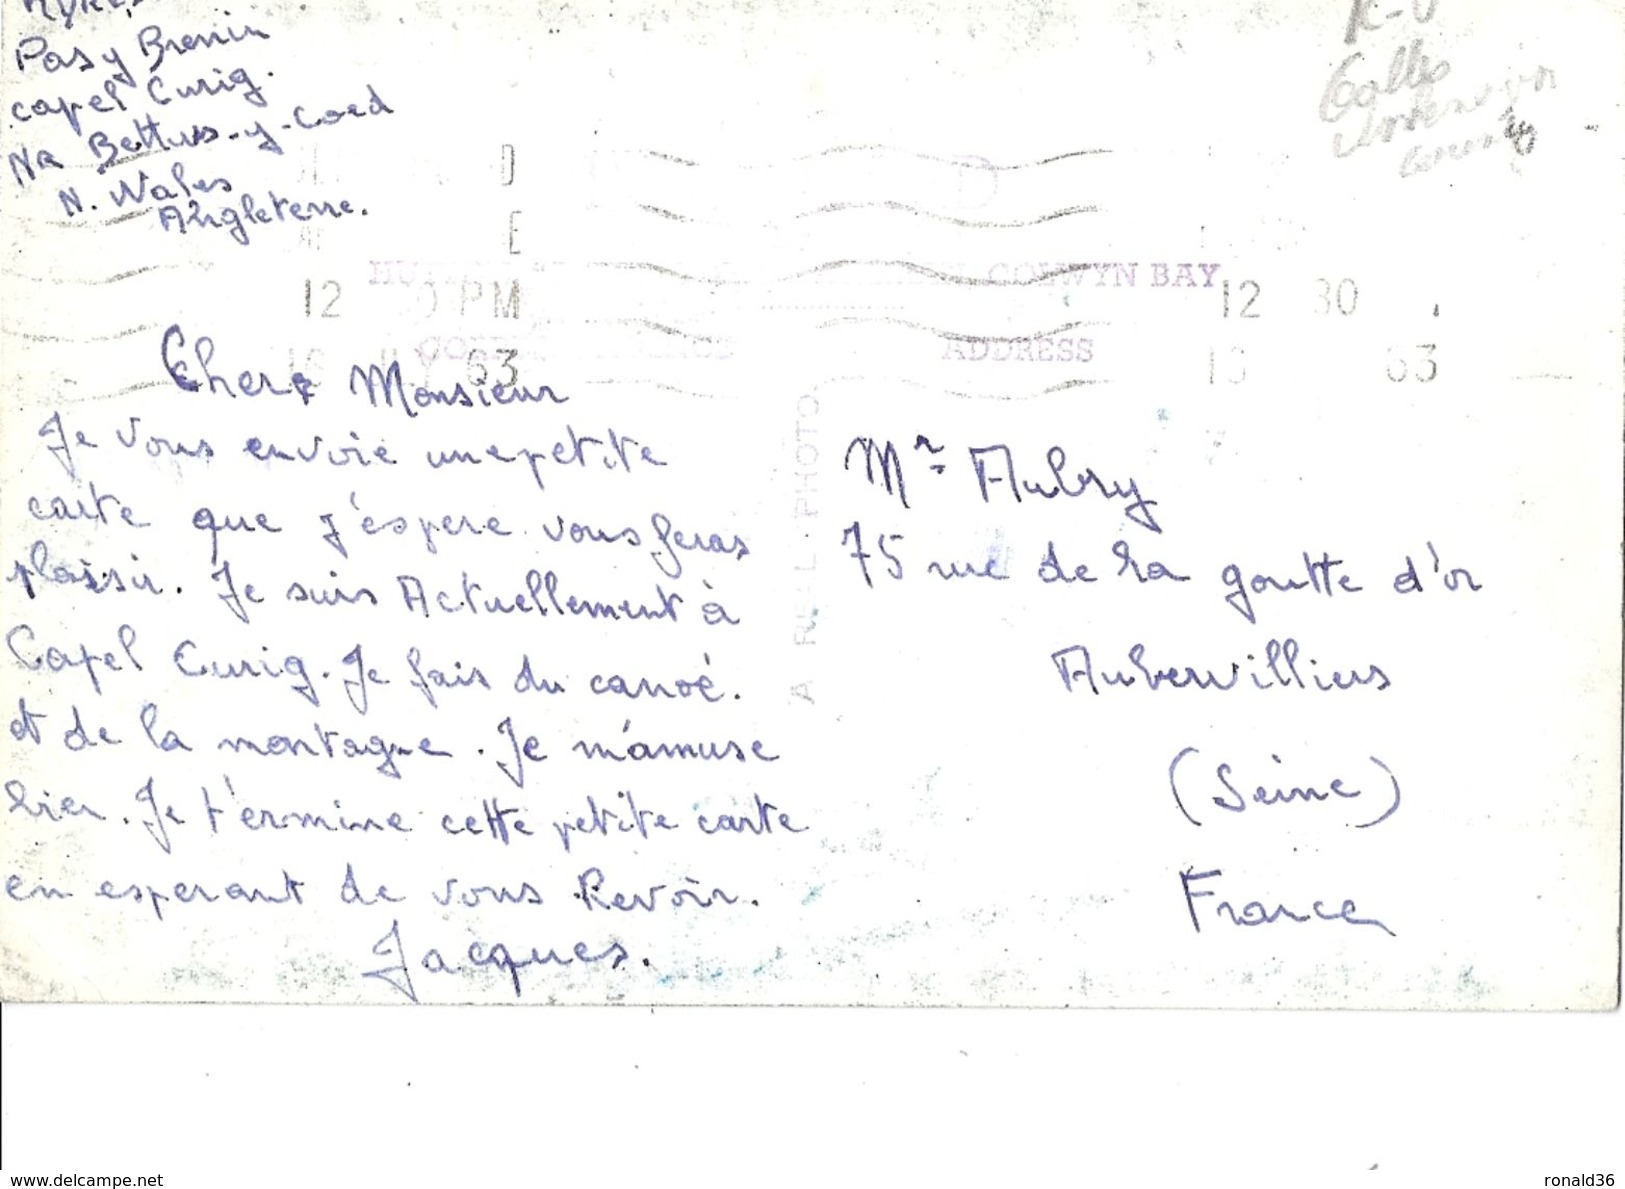 Pas y Brenin
Capel Curig.
Nr Bettws-y-Coed
N. Wales
Angleterre.
COLWYN BAY
ADDRESS
12 PM
63
12 30
63
Cher Monsieur
Je vous envoie une petite
carte que j'éspere vous feras
plaisir. Je suis Actuellement à
Capel Curig. Je fais du canoé.
et de la montagne. Je m'amuse
bien. Je t'ermine cette petite carte
en esperant de vous Revoir.
Jacques.
A REAL PHOTO
Mr Aubry
75 rue de la goutte d'or
Aubervilliers
(Seine)
France
www.delcampe.net
ronald36